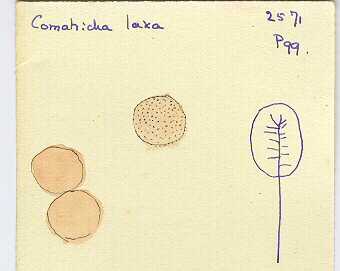 Comatricha laxa
2571
P99.